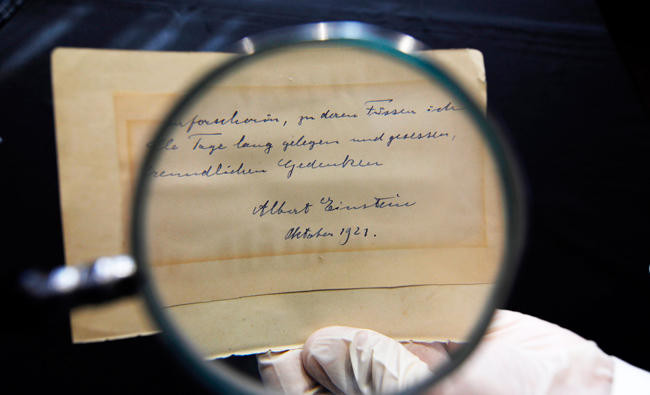 forscherin, zu deren Füssen ich
Tage lang gelegen und gesessen,
freundlichen Gedenken
Albert Einstein
Oktober 1921.